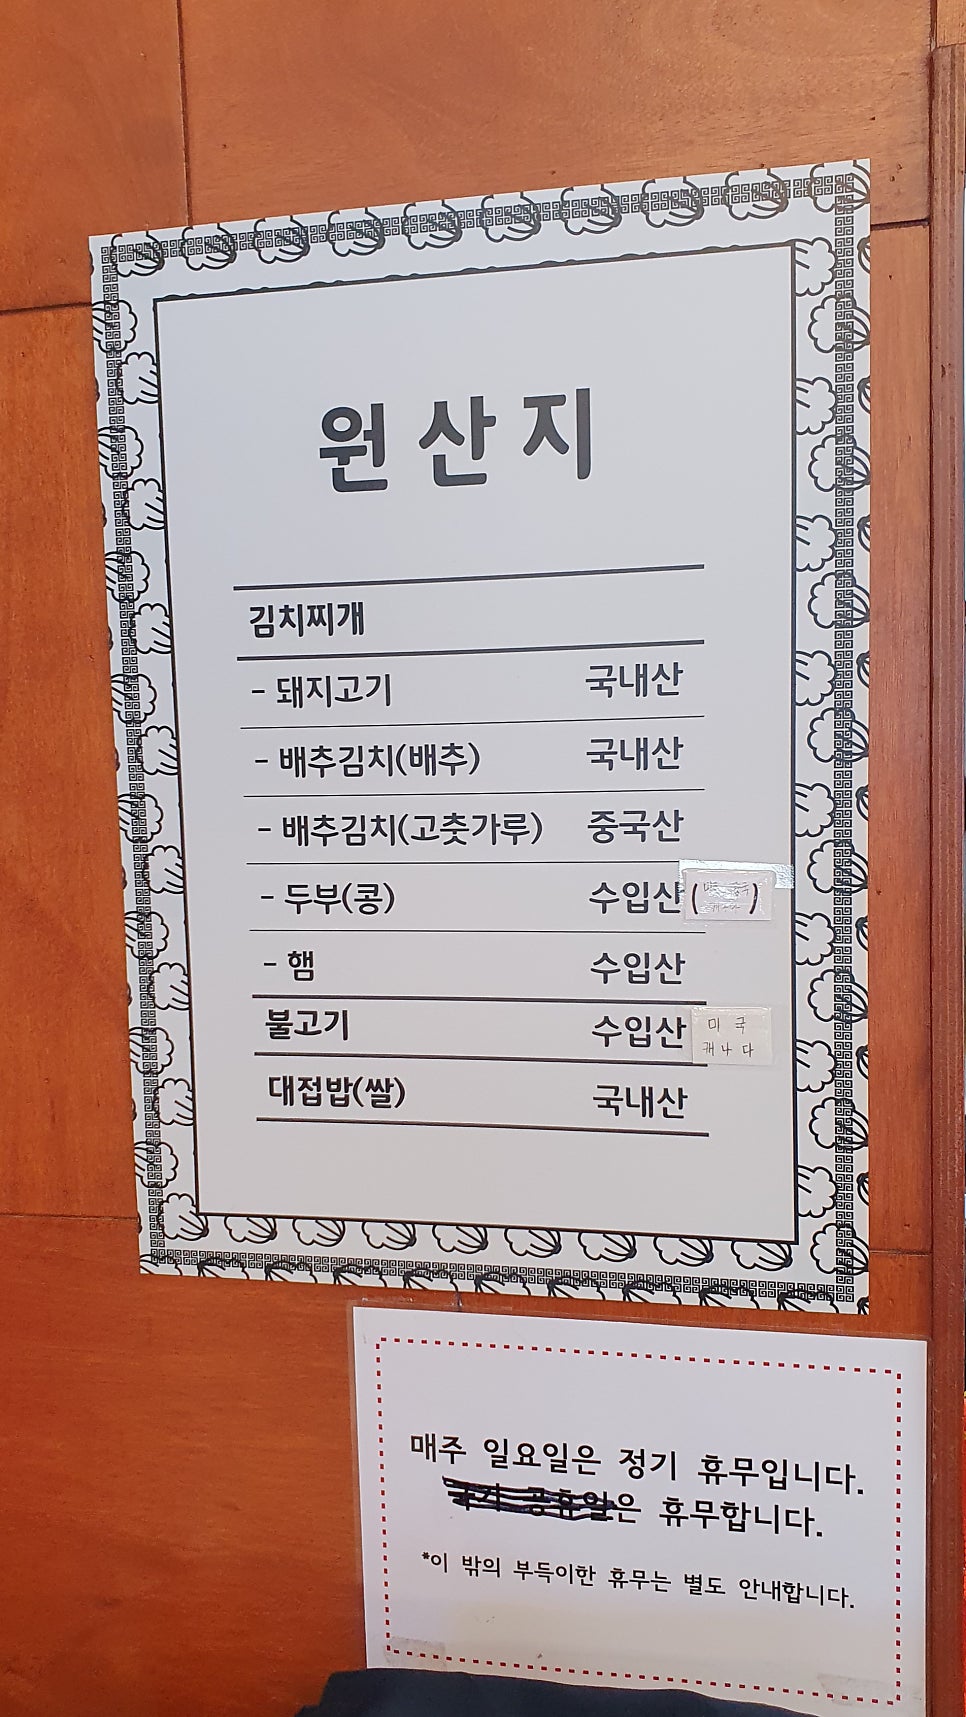 원산지
김치찌개
- 돼지고기 국내산
- 배추김치(배추) 국내산
- 배추김치(고춧가루) 중국산
- 두부(콩) 수입산( )
- 햄 수입산
불고기 수입산 미국
캐나다
대접밥(쌀) 국내산
매주 일요일은 정기 휴무입니다.
공휴일은 휴무합니다.
*이 밖의 부득이한 휴무는 별도 안내합니다.